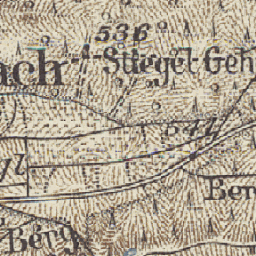 536
ach Stiegel Geh
544
yl
Ber
Berg